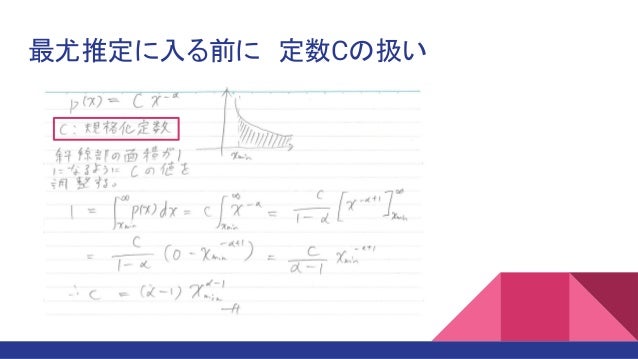 最尤推定に入る前に 定数Cの扱い
p(x) = C x^{-α}
C:規格化定数
斜線部の面積が1
になるように Cの値を
調整する。
x_{min}
1 = ∫_{x_{min}}^{∞} p(x)dx = C ∫_{x_{min}}^{∞} x^{-α} = \frac{C}{1-α} [x^{-α+1}]_{x_{min}}^{∞}
= \frac{C}{1-α} (0 - x_{min}^{-α+1}) = \frac{C}{α-1} x_{min}^{-α+1}
∴ C = (α-1) x_{min}^{α-1}